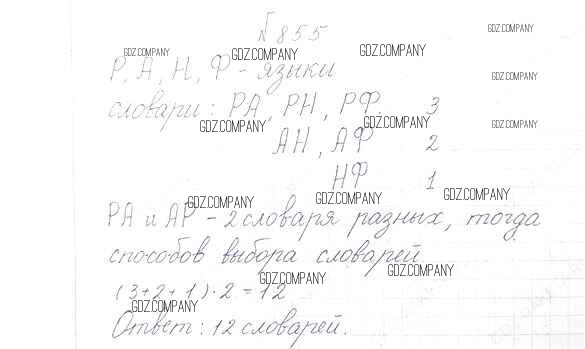 № 855
GDZ.COMPANY
GDZ.COMPANY GDZ.COMPANY GDZ.COMPANY
Р, А, Н, Ф - языки
GDZ.COMPANY
словари: РА, РН, РФ 3
GDZ.COMPANY GDZ.COMPANY GDZ.COMPANY
АН, АФ 2
НФ 1
GDZ.COMPANY GDZ.COMPANY GDZ.COMPANY
РА и АР - 2 словаря разных, тогда
способов выбора словарей
GDZ.COMPANY GDZ.COMPANY
(3+2+1)·2=12
GDZ.COMPANY
Ответ: 12 словарей.